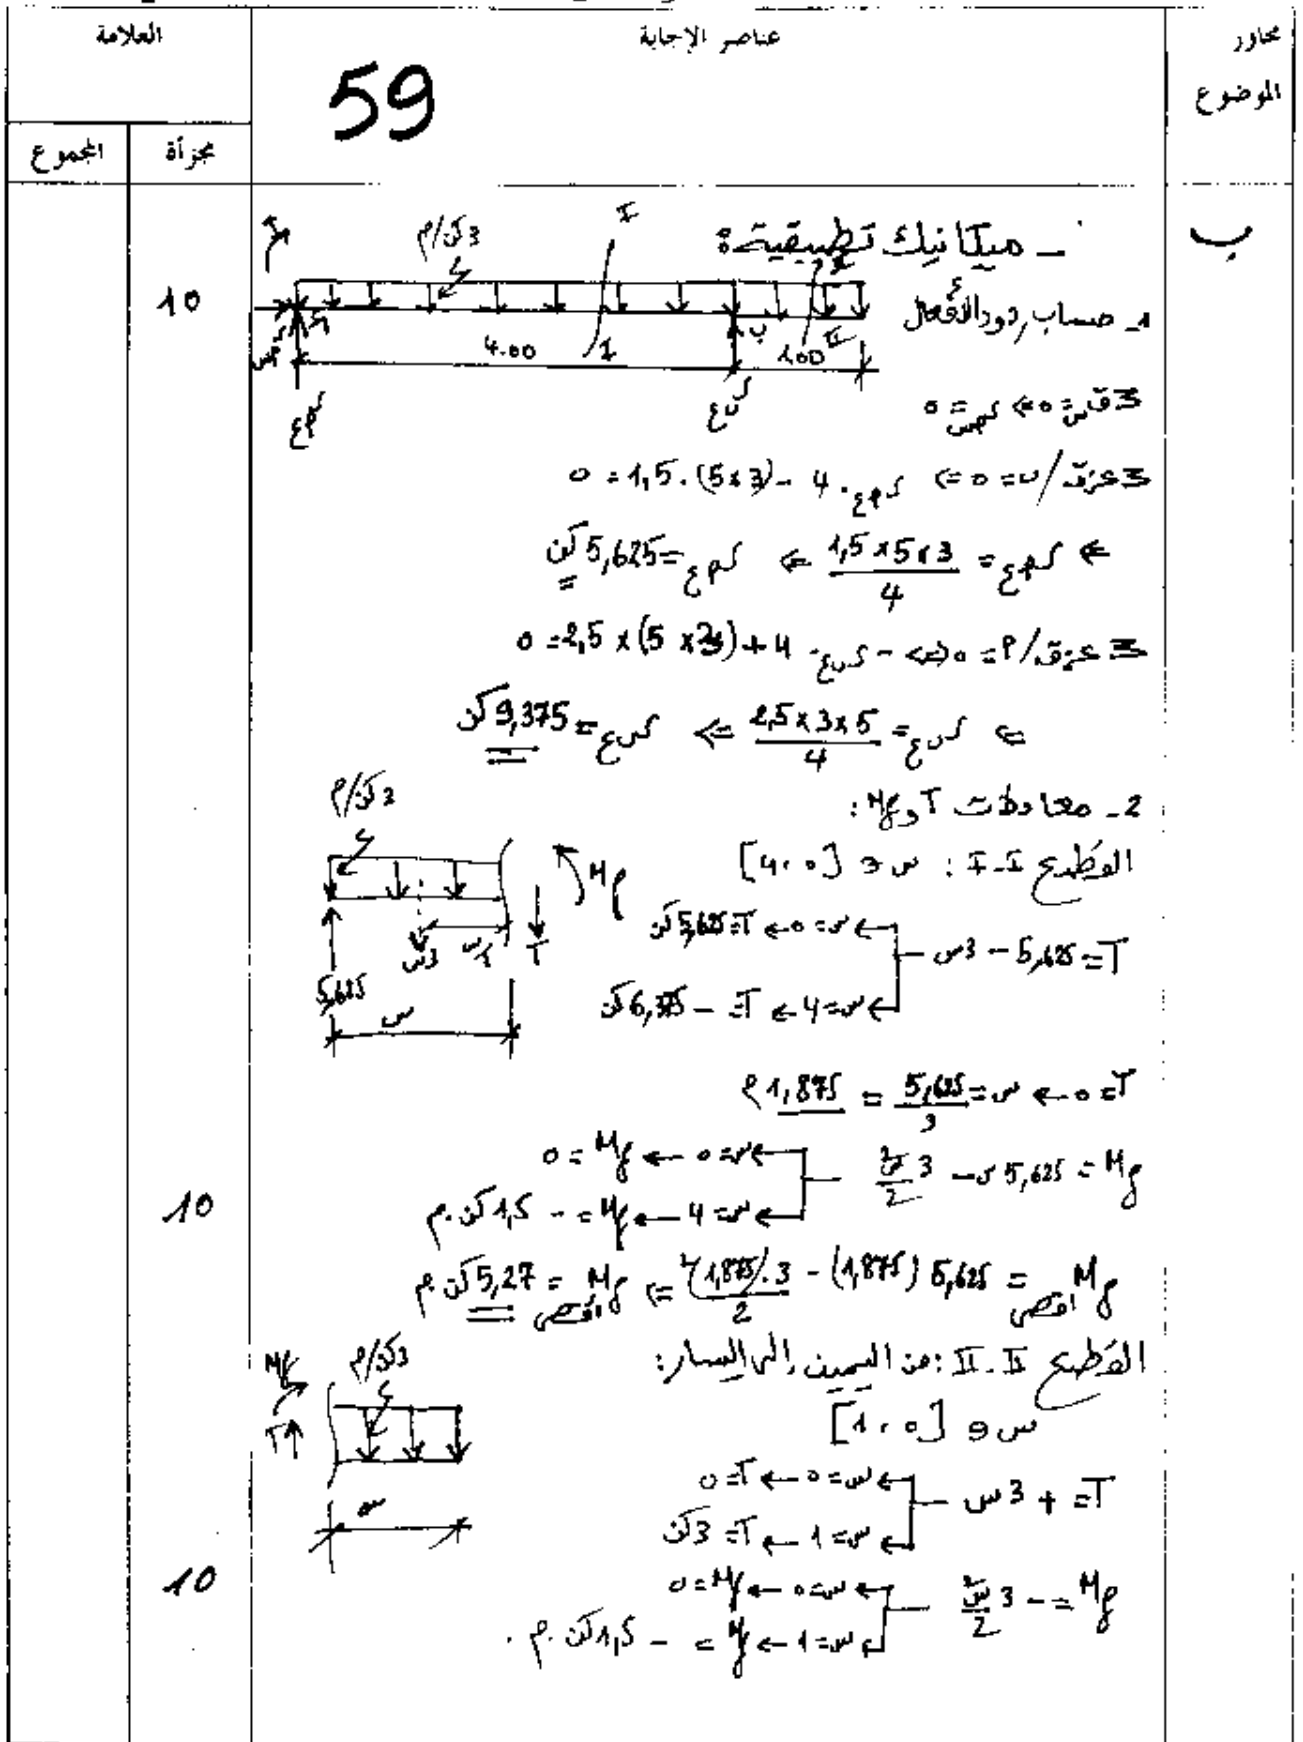 محاور الموضوع
عناصر الإجابة
العلامة
مجزأة
المجموع
59
ب
ـ ميكانيك تطبيقية:
10
1ـ حساب ردود الأفعال
3 كن/م
I
I
II
4.00
1.00
أ
ب
0 = 1,5 . (5 × 3) - 4 .
1,5 × 5 × 3 / 4
= 5,625 كن
0 = 2,5 × (5 × 3) + 4 .
2,5 × 3 × 5 / 4
= 9,375 كن
2ـ معادلات T و Mf:
القطع I-I : س ∈ [0 ، 4]
3 كن/م
Mf
T
3س
س/2
5,625
س
T = 5,625 - 3س
س = 0 ← T = 5,625 كن
س = 4 ← T = - 6,375 كن
T = 0 ← س = 5,625 / 3 = 1,875 م
10
Mf = 5,625 س - 3 س² / 2
س = 0 ← Mf = 0
س = 4 ← Mf = - 1,5 كن.م
Mf اقصى = 5,625 (1,875) - 3.(1,875)² / 2 ⇒ Mf اقصى = 5,27 كن.م
القطع II-II : من اليمين إلى اليسار:
س ∈ [0 ، 1]
Mf
3 كن/م
T
س
T = + 3 س
س = 0 ← T = 0
س = 1 ← T = 3 كن
10
Mf = - 3 س² / 2
س = 0 ← Mf = 0
س = 1 ← Mf = - 1,5 كن.م.